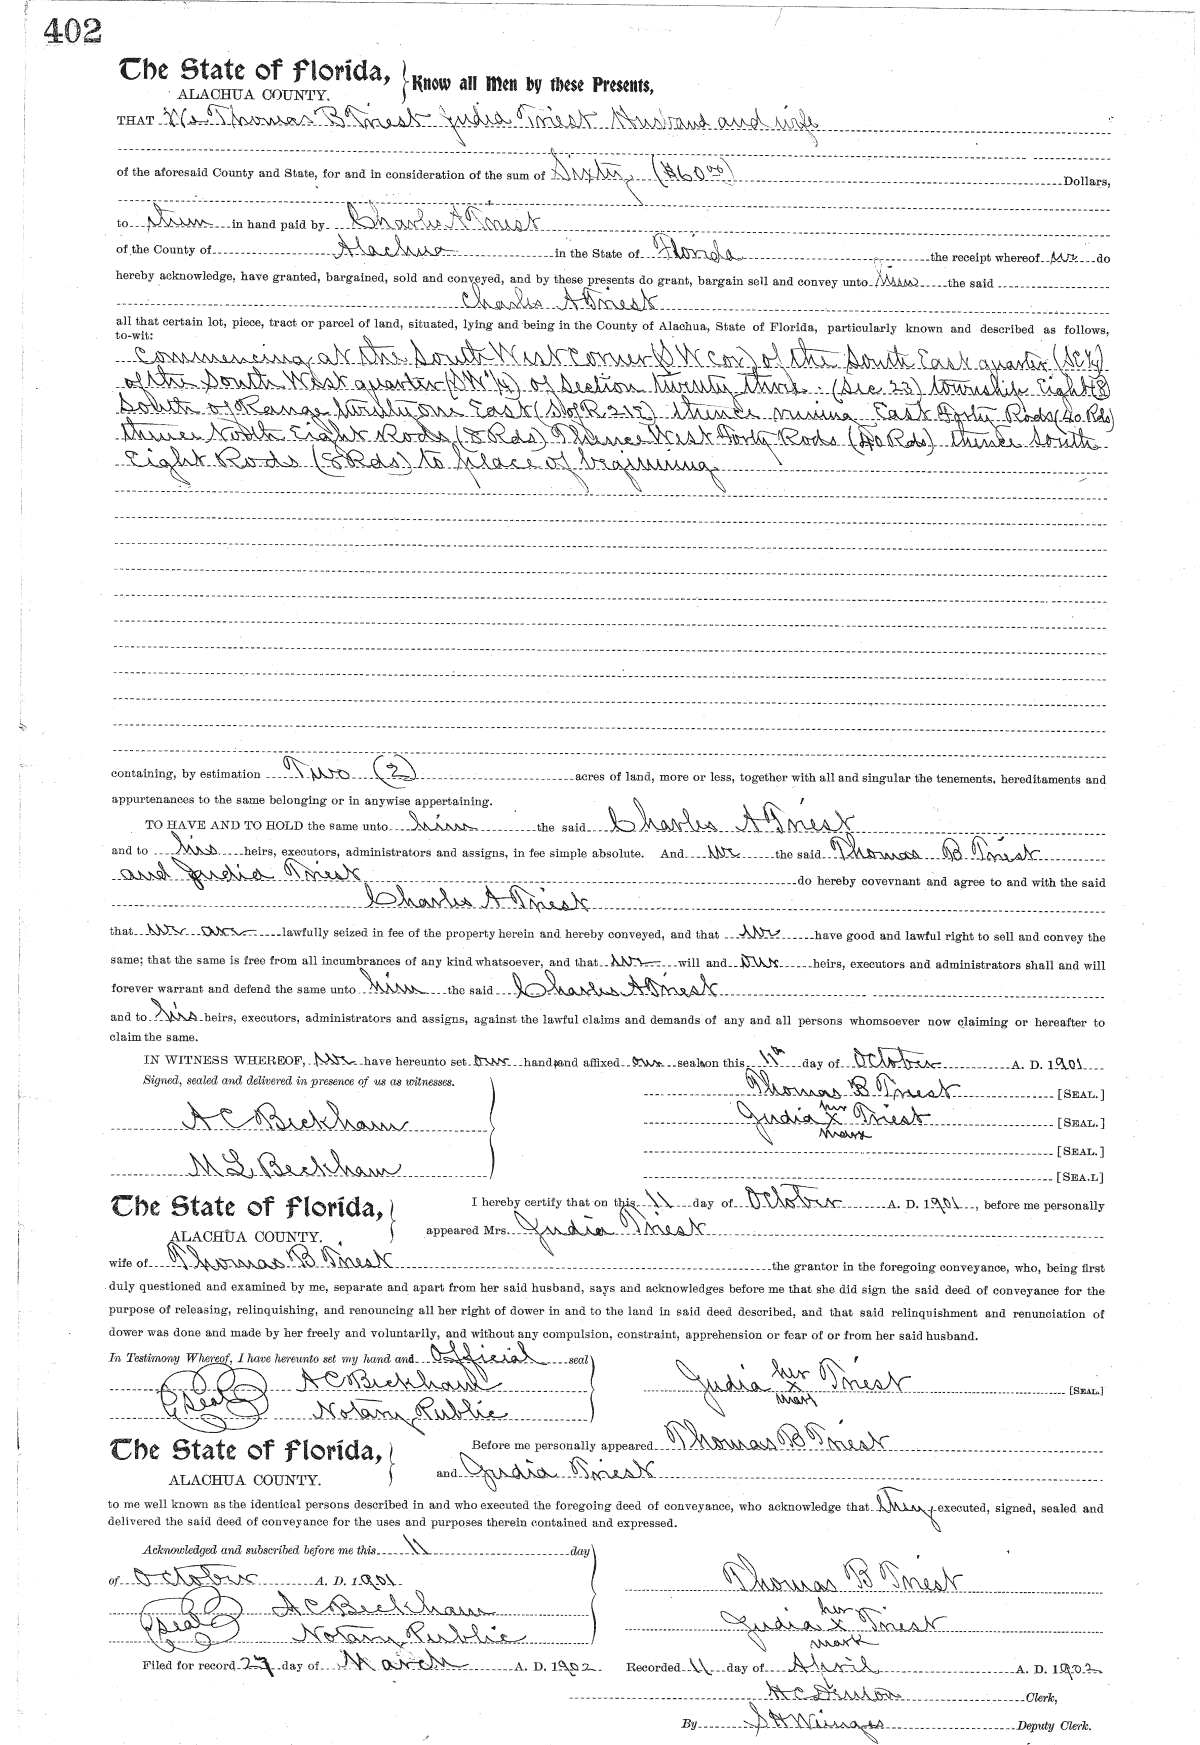 402
The State of Florida, Know all Men by these Presents,
ALACHUA COUNTY.
THAT We Thomas B Triest Judia Triest Husband and wife
of the aforesaid County and State, for and in consideration of the sum of Sixty ($60 00) Dollars,
to them in hand paid by Charles A Triest
of the County of Alachua in the State of Florida the receipt whereof we do
hereby acknowledge, have granted, bargained, sold and conveyed, and by these presents do grant, bargain sell and convey unto him the said
Charles A Triest
all that certain lot, piece, tract or parcel of land, situated, lying and being in the County of Alachua, State of Florida, particularly known and described as follows,
to-wit:
Commencing at the South West corner (SW Cor) of the South East quarter (SE 1/4)
of the South West quarter (SW 1/4) of Section twenty three (Sec 23) township Eight (8)
South of Range twenty one East (S of R 21 E) thence runing East Forty Rods (40 Rds)
thence North Eight Rods (8 Rds) Thence West Forty Rods (40 Rds) thence South
Eight Rods (8 Rds) to place of begining
containing, by estimation Two (2) acres of land, more or less, together with all and singular the tenements, hereditaments and
appurtenances to the same belonging or in anywise appertaining.
TO HAVE AND TO HOLD the same unto him the said Charles A Triest
and to his heirs, executors, administrators and assigns, in fee simple absolute. And we the said Thomas B Triest
and Judia Triest do hereby covevnant and agree to and with the said
Charles A Triest
that we are lawfully seized in fee of the property herein and hereby conveyed, and that we have good and lawful right to sell and convey the
same; that the same is free from all incumbrances of any kind whatsoever, and that we will and our heirs, executors and administrators shall and will
forever warrant and defend the same unto him the said Charles A Triest
and to his heirs, executors, administrators and assigns, against the lawful claims and demands of any and all persons whomsoever now claiming or hereafter to
claim the same.
IN WITNESS WHEREOF, we have hereunto set our hands and affixed our seals on this 11th day of October A. D. 1901
Signed, sealed and delivered in presence of us as witnesses. Thomas B Triest [SEAL.]
A C Beckham Judia her x mark Triest [SEAL.]
[SEAL.]
M L Beckham [SEA.L]
The State of Florida, I hereby certify that on this 11 day of October A. D. 1901, before me personally
ALACHUA COUNTY. appeared Mrs. Judia Triest
wife of Thomas B Triest the grantor in the foregoing conveyance, who, being first
duly questioned and examined by me, separate and apart from her said husband, says and acknowledges before me that she did sign the said deed of conveyance for the
purpose of releasing, relinquishing, and renouncing all her right of dower in and to the land in said deed described, and that said relinquishment and renunciation of
dower was done and made by her freely and voluntarily, and without any compulsion, constraint, apprehension or fear of or from her said husband.
In Testimony Whereof, I have hereunto set my hand and Official seal
Seal A C Beckham Judia her x mark Triest [SEAL.]
Notary Public
The State of Florida, Before me personally appeared Thomas B Triest
ALACHUA COUNTY. and Judia Triest
to me well known as the identical persons described in and who executed the foregoing deed of conveyance, who acknowledge that they executed, signed, sealed and
delivered the said deed of conveyance for the uses and purposes therein contained and expressed.
Acknowledged and subscribed before me this 11 day
of October A. D. 1901 Thomas B Triest
Seal A C Beckham
Notary Public Judia her x mark Triest
Filed for record 27 day of March A. D. 1902 Recorded 11 day of April A. D. 1902
H C Denton Clerk,
By S H Wienges Deputy Clerk.